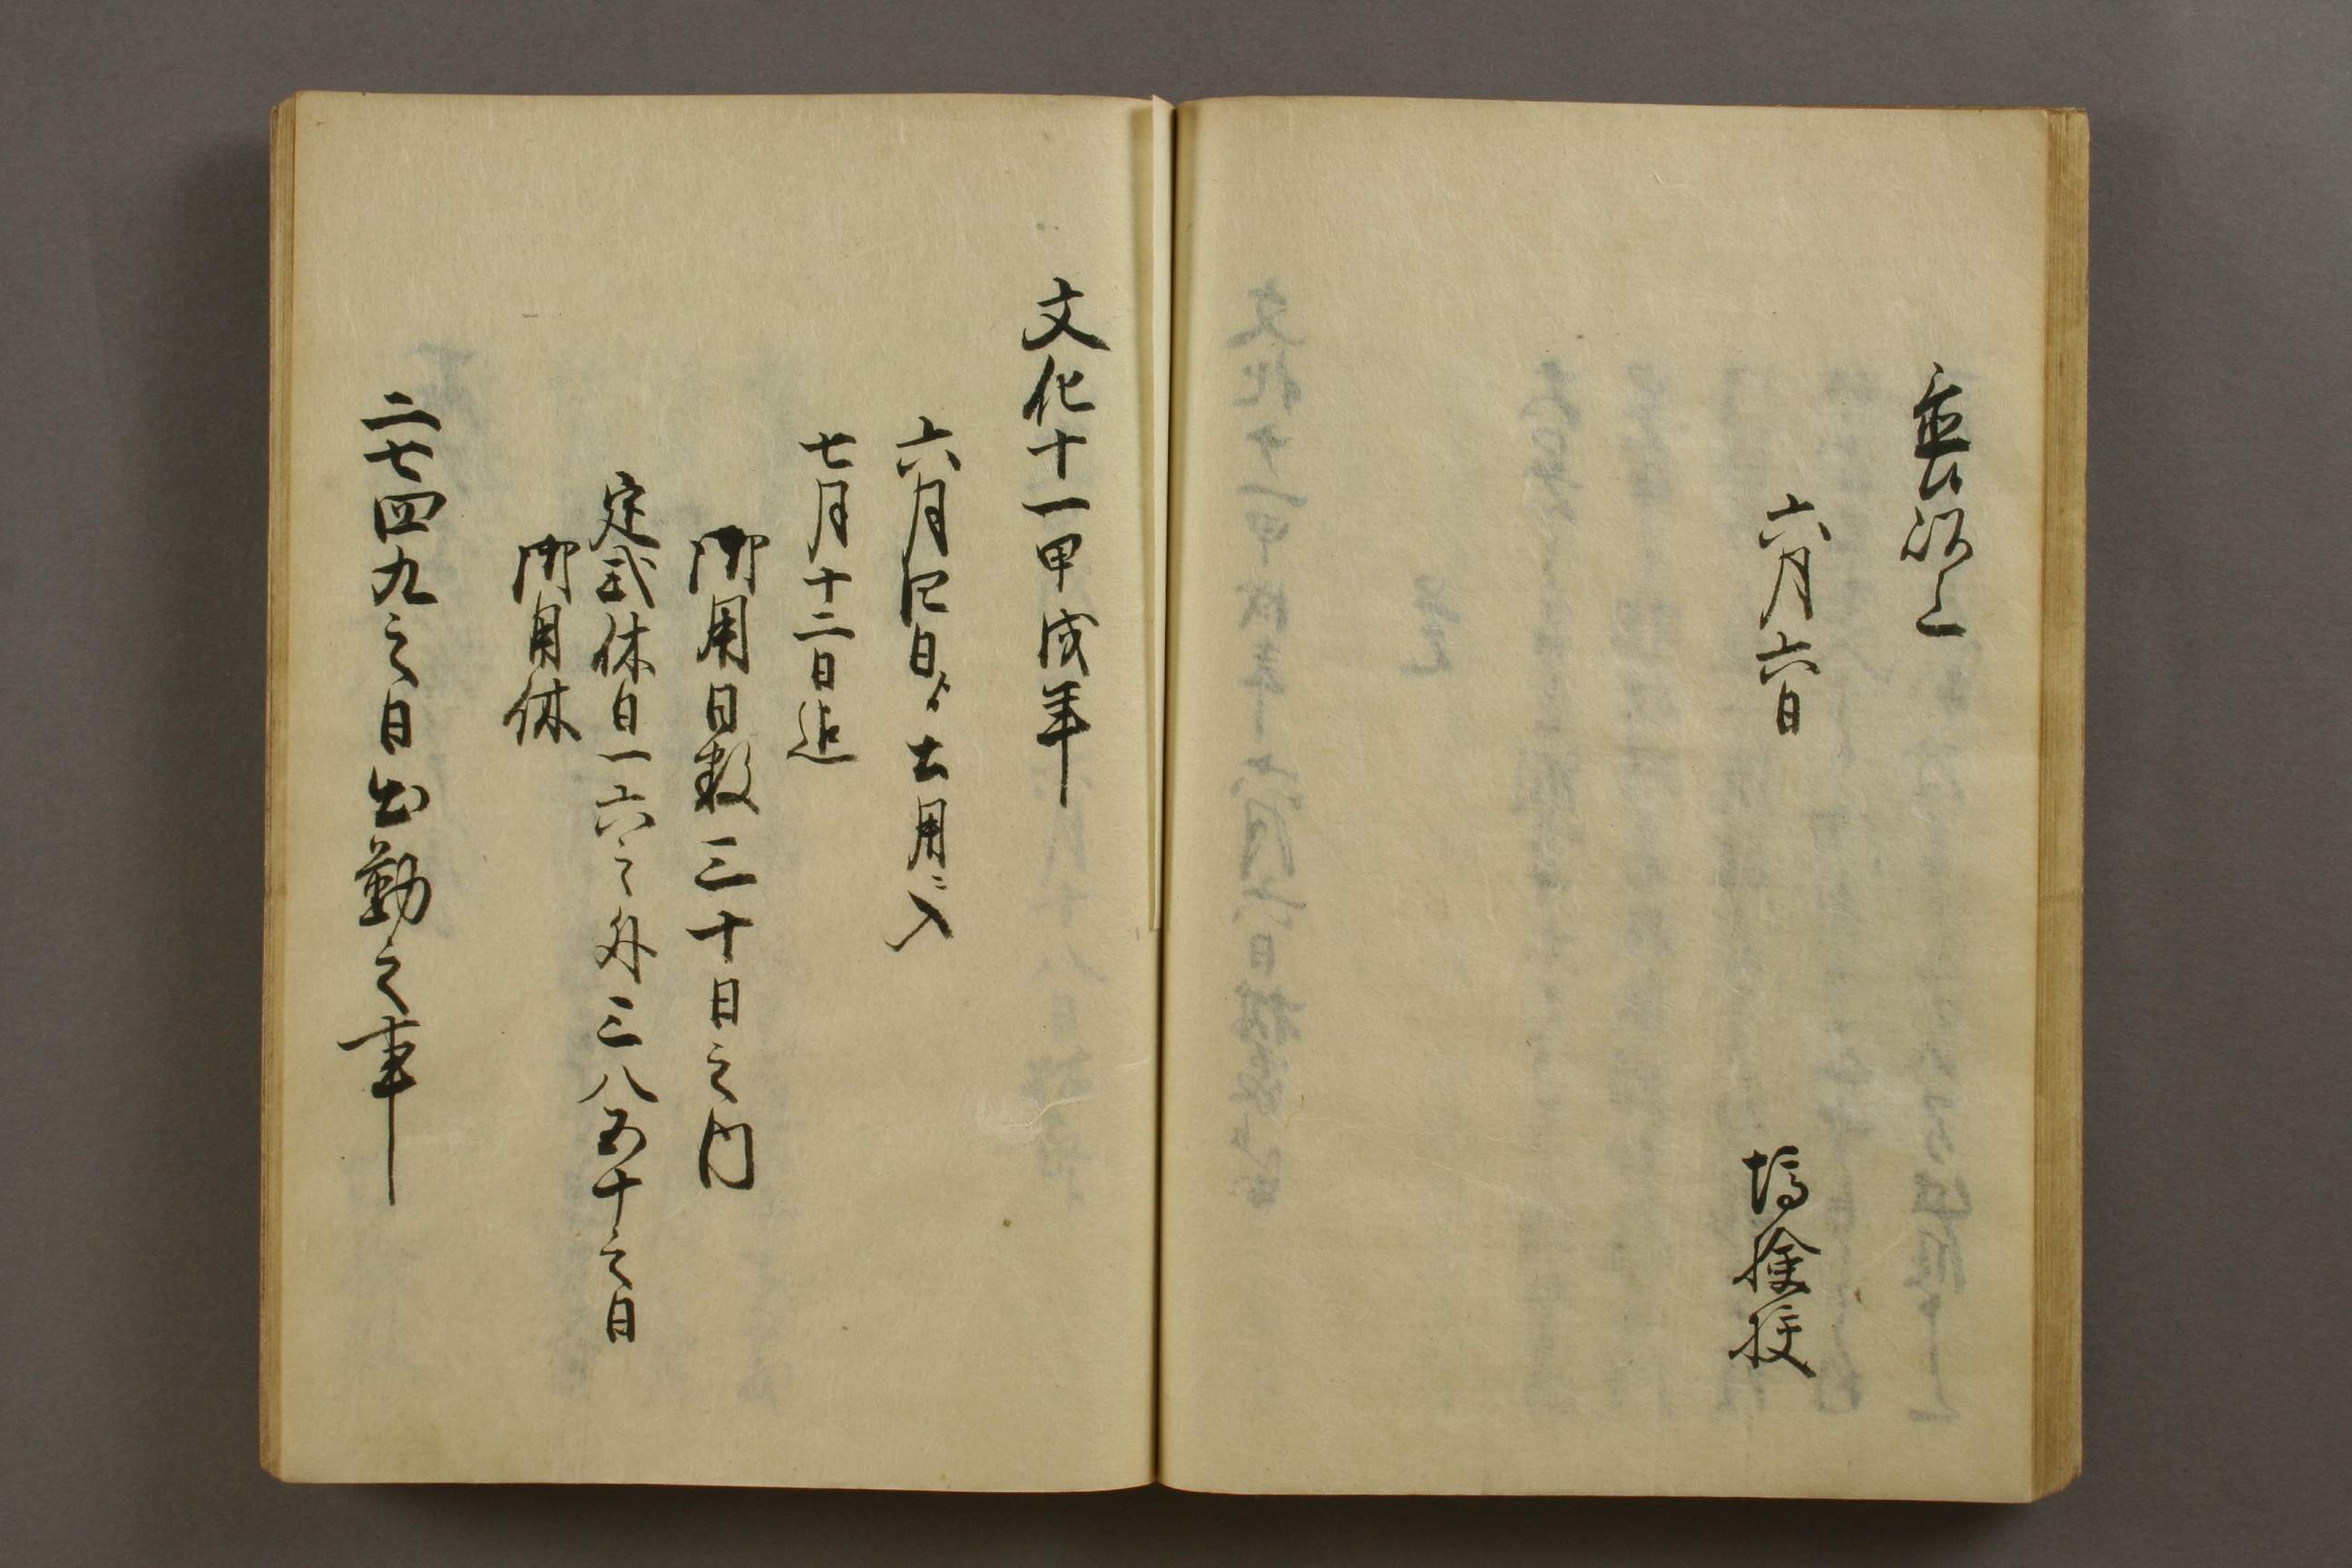 無沙汰
六月六日
塙検校
文化十一甲戌年
六月四日ゟ土用ニ入
七月十二日迄
御用日数三十日之内
定式休日一六之外三八五十之日
御用休
二七四九之日出勤之事